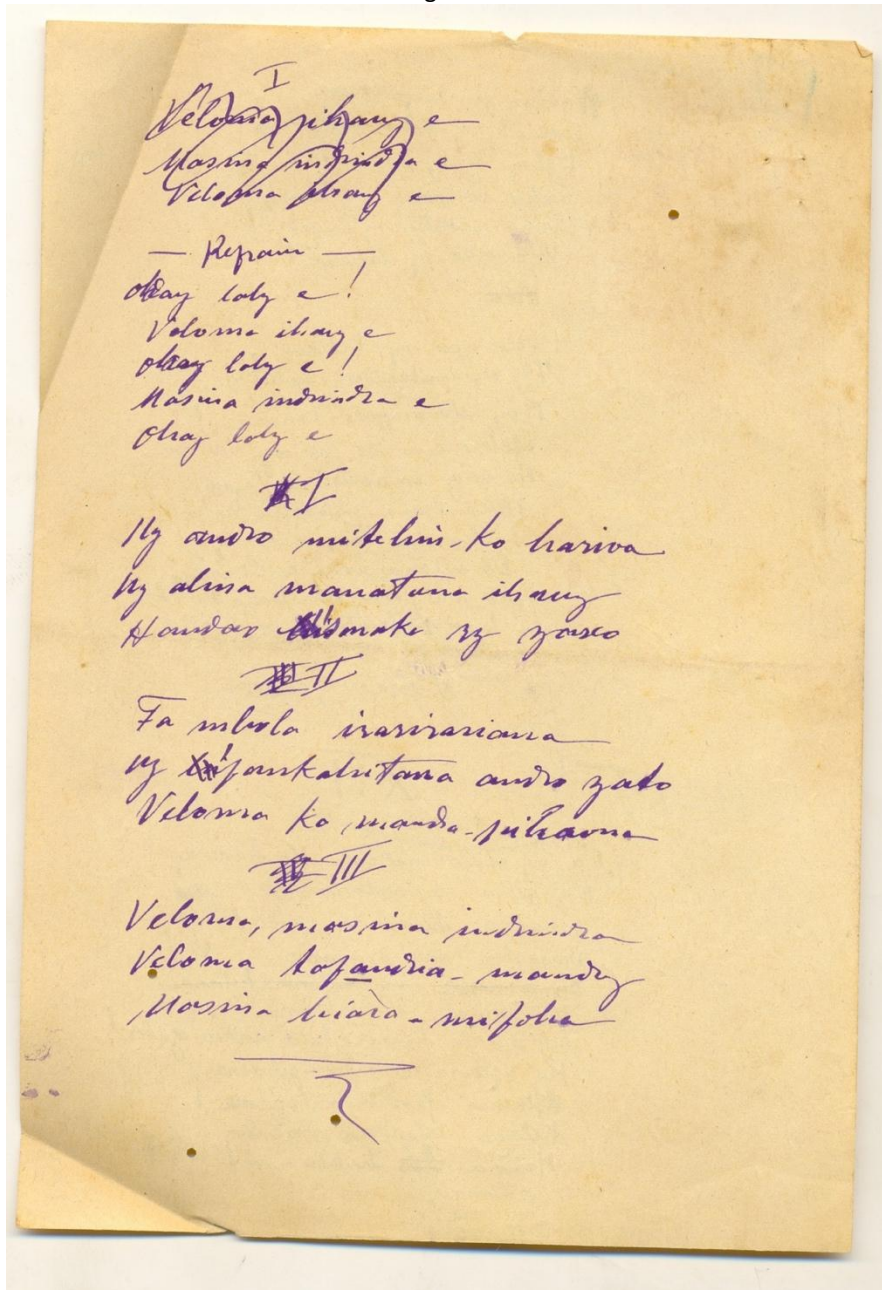 I
Veloma ihany e
Masina indrindra e
Veloma ihany e
— Refrain —
okay loly e !
Veloma ihany e
okay loly e !
Masina indrindra e
Okay loly e
I
Ny andro mitelin-ko hariva
Ny alina manatona ihany
Handao ny zareo
II
Fa mbola irarirariana
ny andro zato
Veloma ko mandra-pihaona
III
Veloma, masina indrindra
Veloma tofandria-mandry
Masina miara-mifoha